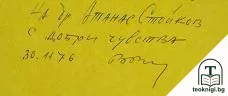 На др Атанас Стойков
с добри чувства
30.11 76
teoknigi.bg